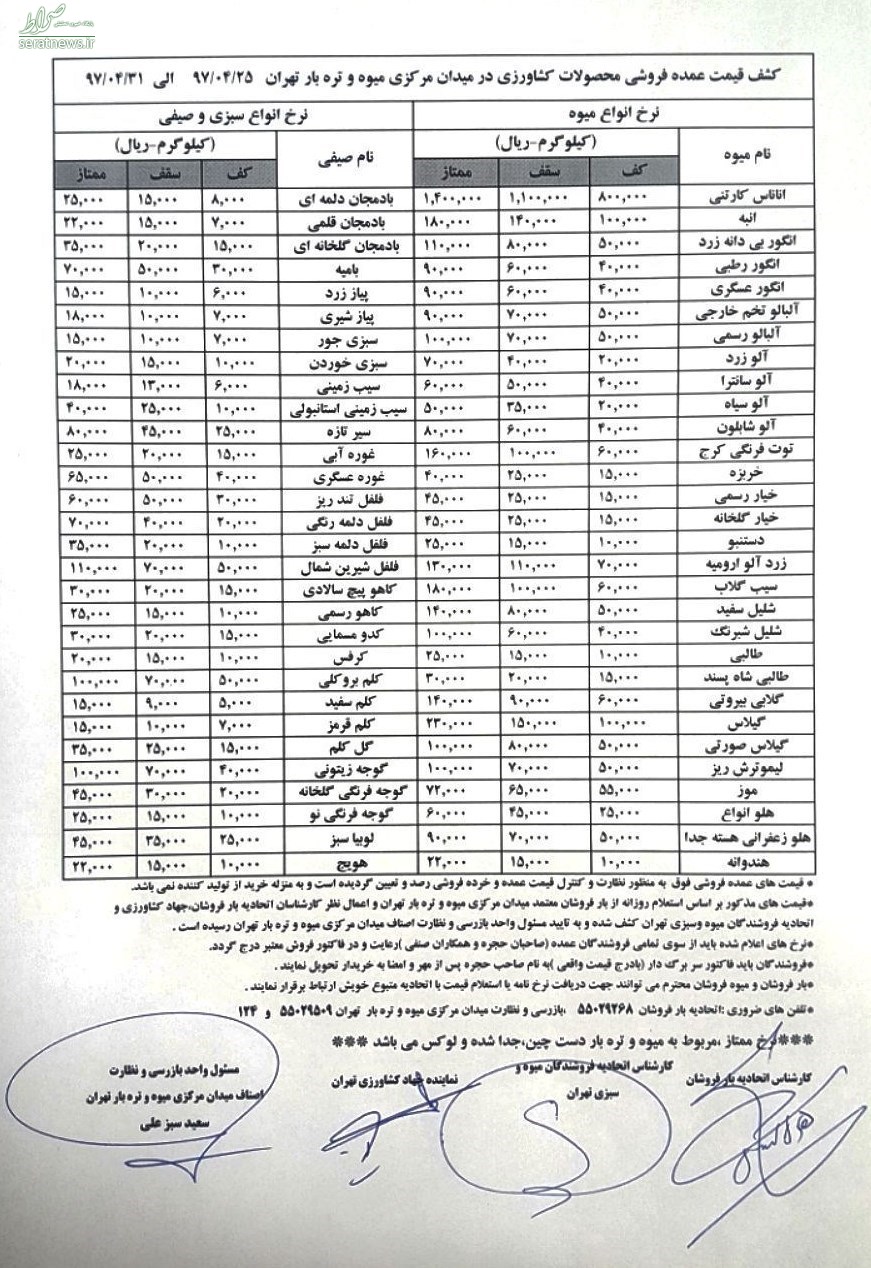 صراط
seratnews.ir
کشف قیمت عمده فروشی محصولات کشاورزی در میدان مرکزی میوه و تره بار تهران ۹۷/۰۴/۲۵ الی ۹۷/۰۴/۳۱
نرخ انواع میوه نرخ انواع سبزی و صیفی
نام میوه (کیلوگرم-ریال) نام صیفی (کیلوگرم-ریال)
کف سقف ممتاز کف سقف ممتاز
اناناس کارتنی ۸۰۰,۰۰۰ ۱,۱۰۰,۰۰۰ ۱,۴۰۰,۰۰۰ بادمجان دلمه ای ۸,۰۰۰ ۱۵,۰۰۰ ۲۵,۰۰۰
انبه ۱۰۰,۰۰۰ ۱۴۰,۰۰۰ ۱۸۰,۰۰۰ بادمجان قلمی ۷,۰۰۰ ۱۵,۰۰۰ ۲۲,۰۰۰
انگور بی دانه زرد ۵۰,۰۰۰ ۸۰,۰۰۰ ۱۱۰,۰۰۰ بادمجان گلخانه ای ۱۵,۰۰۰ ۲۰,۰۰۰ ۳۵,۰۰۰
انگور رطبی ۴۰,۰۰۰ ۶۰,۰۰۰ ۹۰,۰۰۰ بامیه ۳۰,۰۰۰ ۵۰,۰۰۰ ۷۰,۰۰۰
انگور عسگری ۴۰,۰۰۰ ۶۰,۰۰۰ ۹۰,۰۰۰ پیاز زرد ۶,۰۰۰ ۱۰,۰۰۰ ۱۵,۰۰۰
آلبالو تخم خارجی ۵۰,۰۰۰ ۷۰,۰۰۰ ۹۰,۰۰۰ پیاز شیری ۷,۰۰۰ ۱۰,۰۰۰ ۱۸,۰۰۰
آلبالو رسمی ۵۰,۰۰۰ ۷۰,۰۰۰ ۱۰۰,۰۰۰ سبزی جور ۷,۰۰۰ ۱۰,۰۰۰ ۱۵,۰۰۰
آلو زرد ۲۰,۰۰۰ ۴۰,۰۰۰ ۷۰,۰۰۰ سبزی خوردن ۱۰,۰۰۰ ۱۵,۰۰۰ ۲۰,۰۰۰
آلو سانترا ۴۰,۰۰۰ ۵۰,۰۰۰ ۶۰,۰۰۰ سیب زمینی ۶,۰۰۰ ۱۳,۰۰۰ ۱۸,۰۰۰
آلو سیاه ۲۰,۰۰۰ ۳۵,۰۰۰ ۵۰,۰۰۰ سیب زمینی استانبولی ۱۰,۰۰۰ ۲۵,۰۰۰ ۴۰,۰۰۰
آلو شابلون ۴۰,۰۰۰ ۶۰,۰۰۰ ۸۰,۰۰۰ سیر تازه ۲۵,۰۰۰ ۴۵,۰۰۰ ۸۰,۰۰۰
توت فرنگی کرج ۶۰,۰۰۰ ۱۰۰,۰۰۰ ۱۶۰,۰۰۰ غوره آبی ۱۵,۰۰۰ ۲۰,۰۰۰ ۲۵,۰۰۰
خربزه ۱۵,۰۰۰ ۲۵,۰۰۰ ۴۰,۰۰۰ غوره عسگری ۴۰,۰۰۰ ۵۰,۰۰۰ ۶۵,۰۰۰
خیار رسمی ۱۵,۰۰۰ ۲۵,۰۰۰ ۴۵,۰۰۰ فلفل تند ریز ۳۰,۰۰۰ ۵۰,۰۰۰ ۶۰,۰۰۰
خیار گلخانه ۱۵,۰۰۰ ۲۵,۰۰۰ ۴۵,۰۰۰ فلفل دلمه رنگی ۲۰,۰۰۰ ۴۰,۰۰۰ ۷۰,۰۰۰
دستنبو ۱۰,۰۰۰ ۱۵,۰۰۰ ۲۵,۰۰۰ فلفل دلمه سبز ۱۰,۰۰۰ ۲۰,۰۰۰ ۳۵,۰۰۰
زرد آلو ارومیه ۷۰,۰۰۰ ۱۱۰,۰۰۰ ۱۳۰,۰۰۰ فلفل شیرین شمال ۵۰,۰۰۰ ۷۰,۰۰۰ ۱۱۰,۰۰۰
سیب گلاب ۶۰,۰۰۰ ۱۰۰,۰۰۰ ۱۸۰,۰۰۰ کاهو پیچ سالادی ۱۵,۰۰۰ ۲۰,۰۰۰ ۳۰,۰۰۰
شلیل سفید ۵۰,۰۰۰ ۸۰,۰۰۰ ۱۴۰,۰۰۰ کاهو رسمی ۱۰,۰۰۰ ۱۵,۰۰۰ ۲۵,۰۰۰
شلیل شبرنگ ۴۰,۰۰۰ ۶۰,۰۰۰ ۱۰۰,۰۰۰ کدو مسمایی ۱۵,۰۰۰ ۲۰,۰۰۰ ۳۰,۰۰۰
طالبی ۱۰,۰۰۰ ۱۵,۰۰۰ ۲۵,۰۰۰ کرفس ۱۰,۰۰۰ ۱۵,۰۰۰ ۲۰,۰۰۰
طالبی شاه پسند ۱۵,۰۰۰ ۲۰,۰۰۰ ۳۰,۰۰۰ کلم بروکلی ۵۰,۰۰۰ ۷۰,۰۰۰ ۱۰۰,۰۰۰
گلابی بیروتی ۶۰,۰۰۰ ۹۰,۰۰۰ ۱۴۰,۰۰۰ کلم سفید ۵,۰۰۰ ۹,۰۰۰ ۱۵,۰۰۰
گیلاس ۱۰۰,۰۰۰ ۱۵۰,۰۰۰ ۲۳۰,۰۰۰ کلم قرمز ۷,۰۰۰ ۱۰,۰۰۰ ۱۵,۰۰۰
گیلاس صورتی ۵۰,۰۰۰ ۸۰,۰۰۰ ۱۰۰,۰۰۰ گل کلم ۱۵,۰۰۰ ۲۵,۰۰۰ ۳۵,۰۰۰
لیموترش ریز ۵۰,۰۰۰ ۷۰,۰۰۰ ۱۰۰,۰۰۰ گوجه زیتونی ۴۰,۰۰۰ ۷۰,۰۰۰ ۱۰۰,۰۰۰
موز ۵۵,۰۰۰ ۶۵,۰۰۰ ۷۲,۰۰۰ گوجه فرنگی گلخانه ۲۰,۰۰۰ ۳۰,۰۰۰ ۴۵,۰۰۰
هلو انواع ۲۵,۰۰۰ ۴۵,۰۰۰ ۶۰,۰۰۰ گوجه فرنگی نو ۱۰,۰۰۰ ۱۵,۰۰۰ ۲۵,۰۰۰
هلو زعفرانی هسته جدا ۵۰,۰۰۰ ۷۰,۰۰۰ ۹۰,۰۰۰ لوبیا سبز ۲۵,۰۰۰ ۳۵,۰۰۰ ۴۵,۰۰۰
هندوانه ۱۰,۰۰۰ ۱۵,۰۰۰ ۲۲,۰۰۰ هویج ۱۰,۰۰۰ ۱۵,۰۰۰ ۲۲,۰۰۰
* قیمت های عمده فروشی فوق به منظور نظارت و کنترل قیمت عمده و خرده فروشی رصد و تعیین گردیده است و به منزله خرید از تولید کننده نمی باشد.
*قیمت های مذکور بر اساس استعلام روزانه از بار فروشان معتمد میدان مرکزی میوه و تره بار تهران و اعمال نظر کارشناسان اتحادیه بار فروشان،جهاد کشاورزی و
اتحادیه فروشندگان میوه وسبزی تهران کشف شده و به تایید مسئول واحد بازرسی و نظارت اصناف میدان مرکزی میوه و تره بار تهران رسیده است .
*نرخ های اعلام شده باید از سوی تمامی فروشندگان عمده (صاحبان حجره و همکاران صنفی )رعایت و در فاکتور فروش معتبر درج گردد.
*فروشندگان باید فاکتور سر برگ دار (بادرج قیمت واقعی )به نام صاحب حجره پس از مهر و امضا به خریدار تحویل نمایند .
*بار فروشان و میوه فروشان محترم می توانند جهت دریافت نرخ نامه یا استعلام قیمت با اتحادیه متبوع خویش ارتباط برقرار نمایند .
*تلفن های ضروری :اتحادیه بار فروشان ۵۵۰۲۹۲۶۸ ،بازرسی و نظارت میدان مرکزی میوه و تره بار تهران ۵۵۰۲۹۵۰۹ و ۱۲۴
***نرخ ممتاز ،مربوط به میوه و تره بار دست چین،جدا شده و لوکس می باشد ***
کارشناس اتحادیه بار فروشان
کارشناس اتحادیه فروشندگان میوه و
سبزی تهران
نماینده جهاد کشاورزی تهران
مسئول واحد بازرسی و نظارت
اصناف میدان مرکزی میوه و تره بار تهران
سعید سبز علی